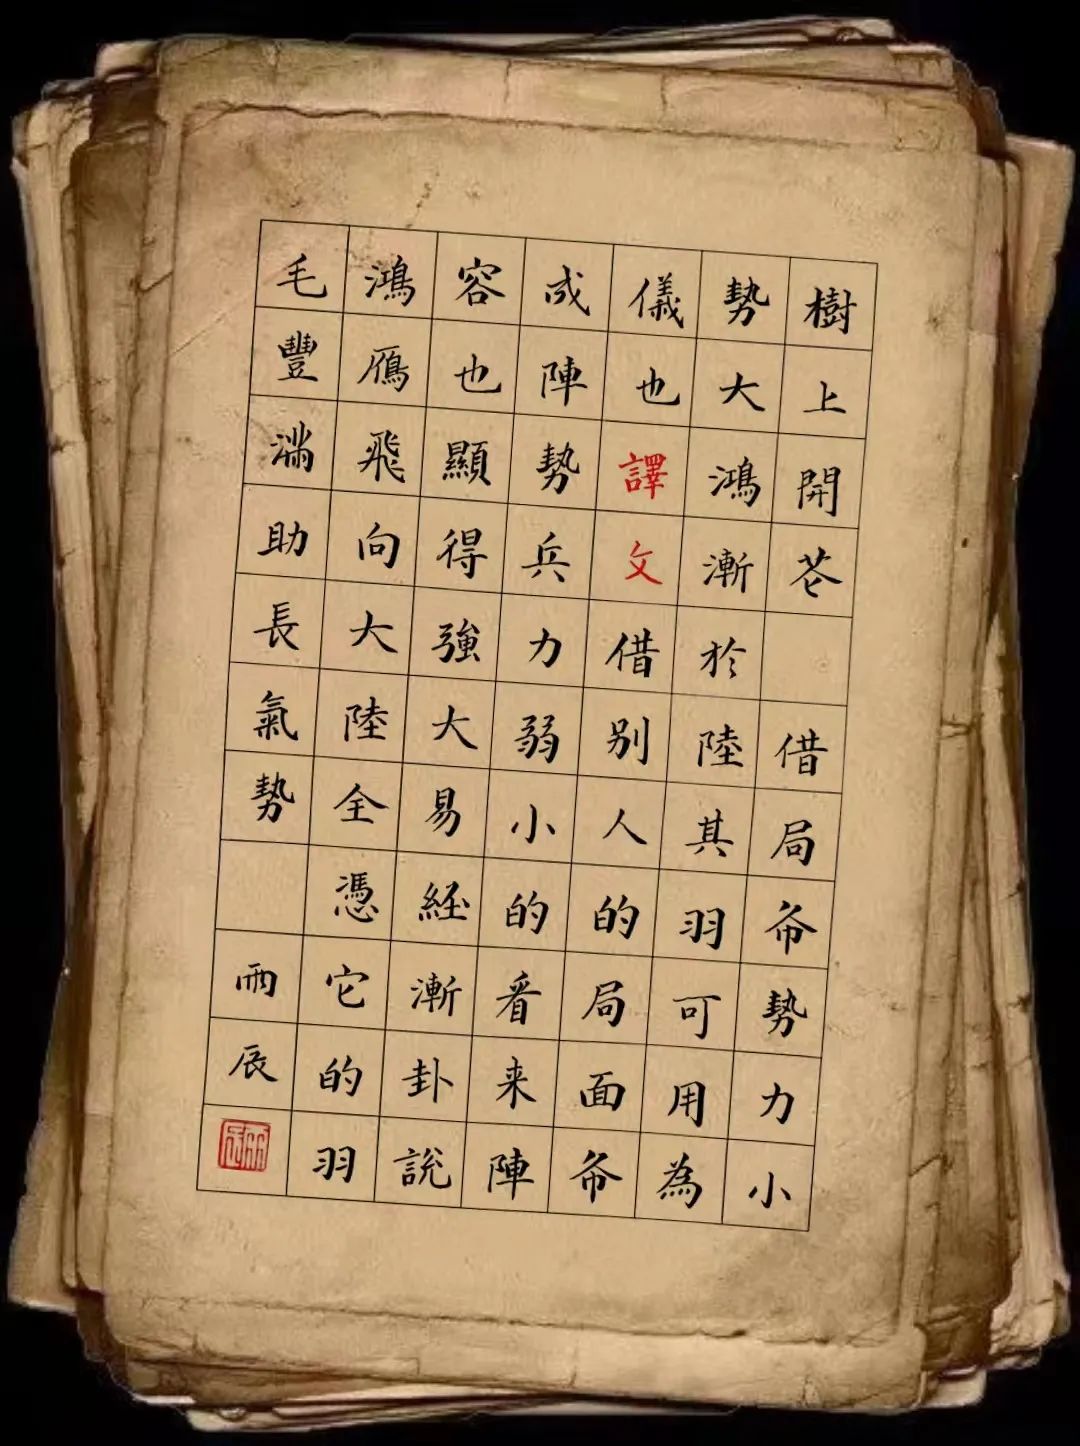 樹上開花 借局布勢力小
勢大鴻漸於陸其羽可用為
儀也譯文借別人的局面布
成陣勢兵力弱小的看来陣
容也顯得強大易經漸卦說
鴻鴈飛向大陸全憑它的羽
毛豐滿助長氣勢 雨辰